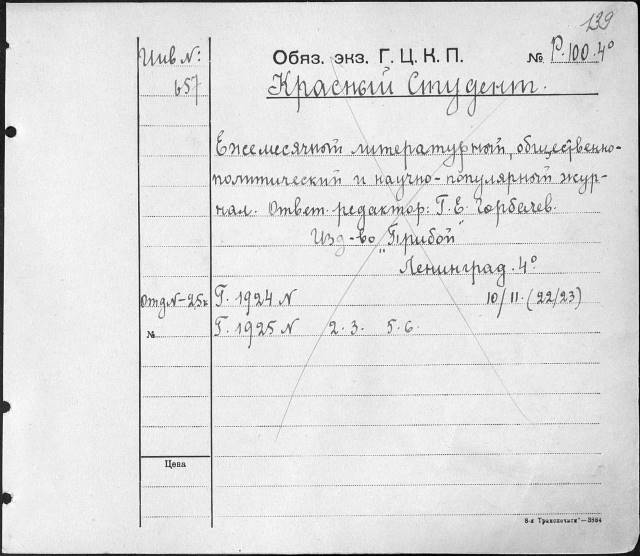 139
Инв №:
657
Обяз. экз. Г. Ц. К. П. № Р.100.4°
Красный Студент.
Ежемесячный литературный, общественно-
политический и научно-популярный жур-
нал. Ответ. редактор: Г. Е. Горбачев.
Изд-во "Прибой"
Ленинград. 4°
Г. 1924 N 10/11. (22/23)
№ Г. 1925 N 2. 3. 5. 6.
Цена